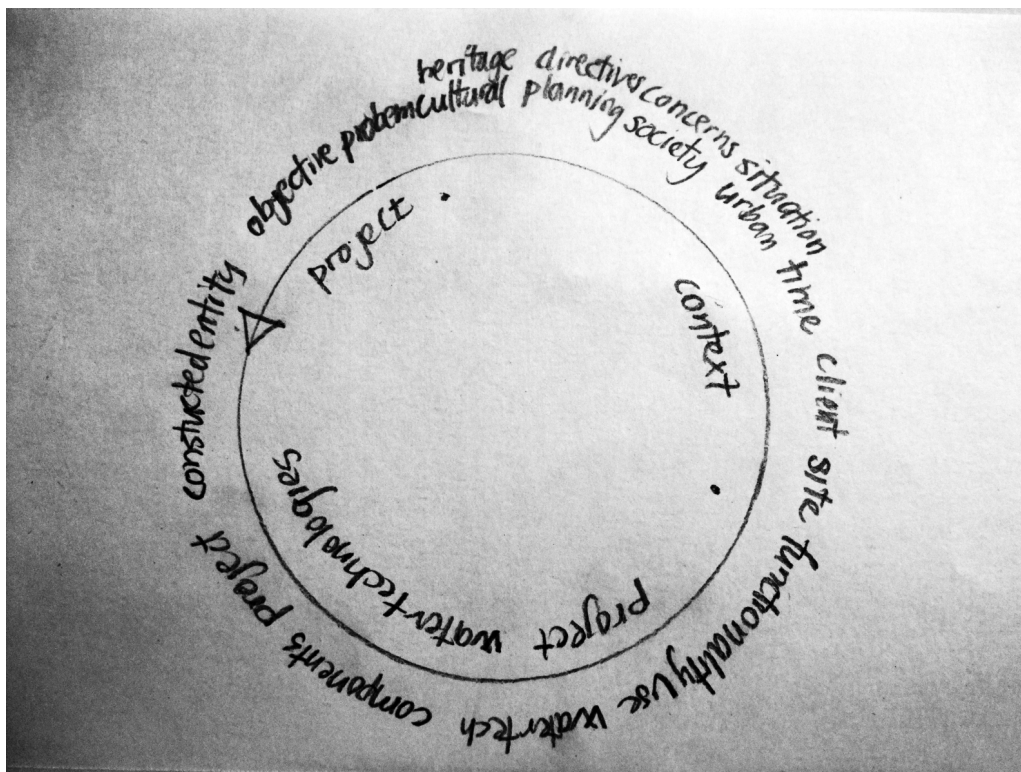 heritage directives concerns situation
objective probem cultural planning society urban time client site functionality use watertech components project constucted entity
project
context
project
water technologies